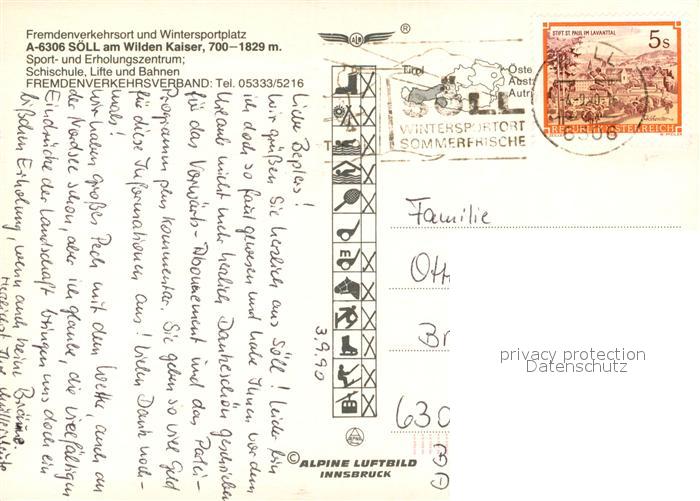 Fremdenverkehrsort und Wintersportplatz
A-6306 SÖLL am Wilden Kaiser, 700—1829 m.
Sport- und Erholungszentrum;
Schischule, Lifte und Bahnen
FREMDENVERKEHRSVERBAND: Tel. 05333/5216
ALR
®
Tirol
Öste
Aust
Autr
SÖLL
WINTERSPORTORT
SOMMERFRISCHE
STIFT ST. PAUL IM LAVANTTAL
5s
REPUBLIK ÖSTERREICH
6306
3.9.90
Liebe Zeplers!
Wir grüßen Sie herzlich aus Söll! Leider bin
ich doch so faul gewesen und habe Ihnen vor dem
Urlaub nicht mehr herzlich Dankeschön geschrieben
für das Vorwärts-Abonnement und das Partei-
Programm plus Kommentar. Sie geben so viel Geld
für diese Informationen aus! Vielen Dank noch-
mals!
Wir haben großes Pech mit dem Wetter, auch an
der Nordsee schon, aber ich glaube, die vielfältigen
Eindrücke der Landschaft bringen uns doch ein
bißchen Erholung, wenn auch keine Bräune.
Herzlichst Ihre
Familie
Ott
Br
630
privacy protection
Datenschutz
E
© ALPINE LUFTBILD
INNSBRUCK